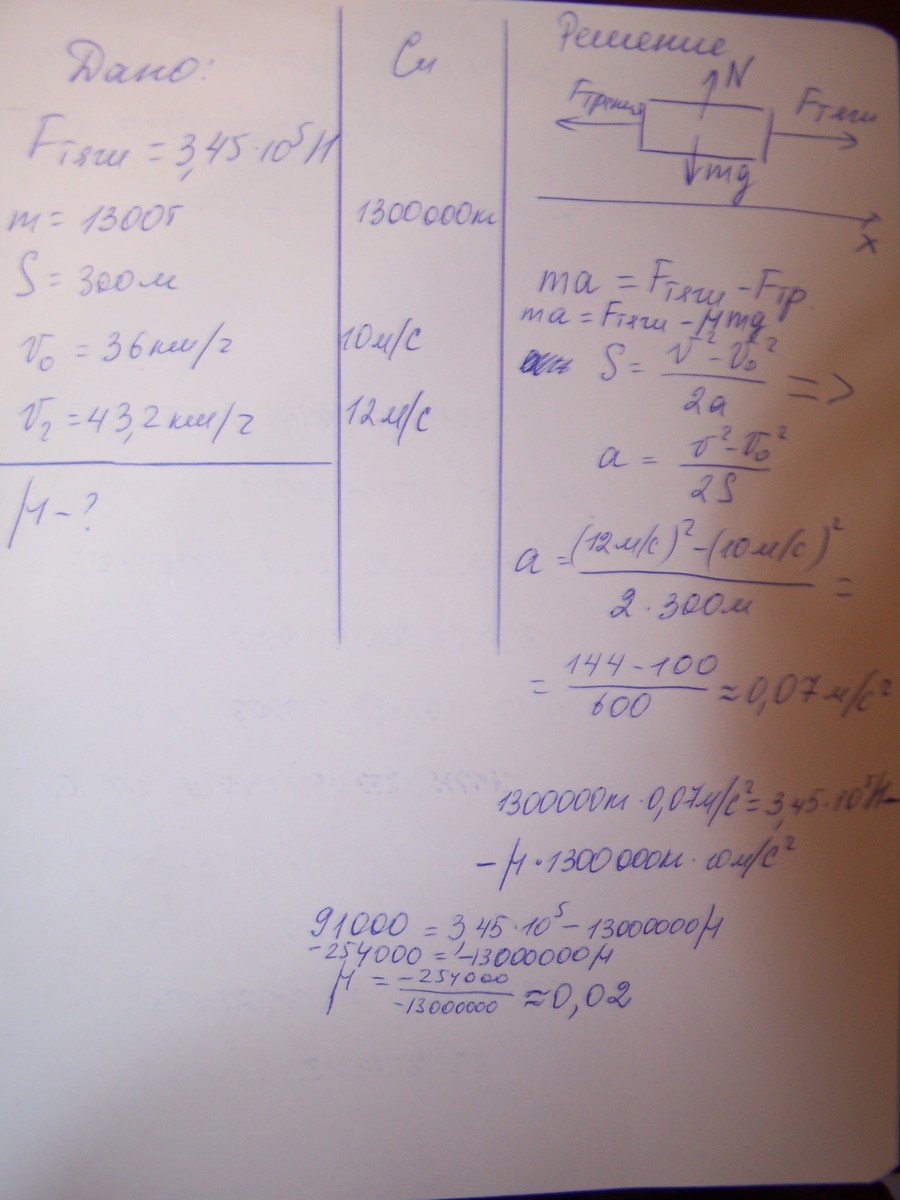 Дано:
Fтяги = 3,45·10⁵Н
m = 1300т
S = 300м
v₀ = 36км/г
v₂ = 43,2км/г
μ - ?
Си
1300000кг
10м/с
12м/с
Решение
N
Fтрения
Fтяги
mg
x
ma = Fтяги - Fтр.
ma = Fтяги - μmg
S = (v² - v₀²)/2a =>
a = (v² - v₀²)/2S
a = ((12м/с)² - (10м/с)²)/(2·300м) =
= (144 - 100)/600 ≈ 0,07м/с²
1300000кг·0,07м/с² = 3,45·10⁵Н -
- μ·1300000кг·10м/с²
91000 = 3,45·10⁵ - 13000000μ
-254000 = -13000000μ
μ = -254000/-13000000 ≈ 0,02